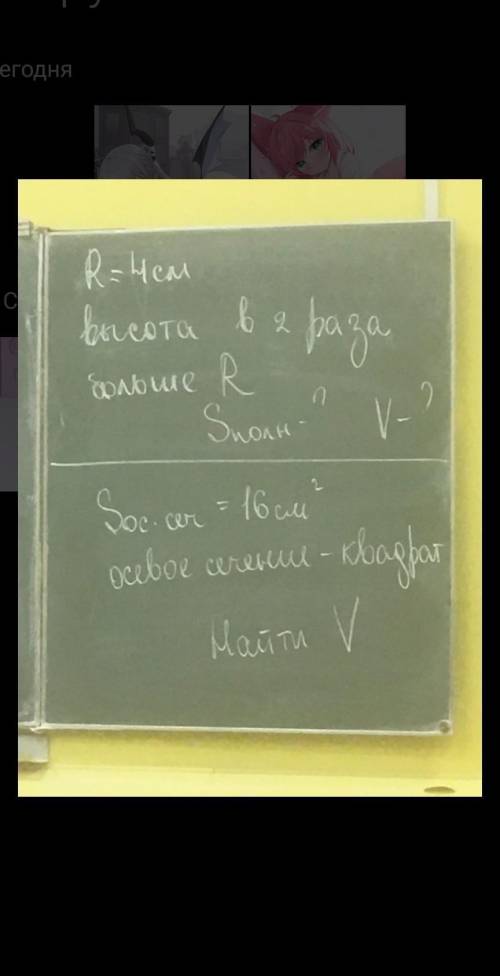 егодня
R = 4 см
высота в 2 раза
больше R
Sполн - ? V - ?
Sос. сеч = 16 см²
осевое сечение - квадрат
Найти V